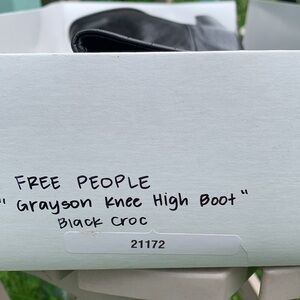 FREE PEOPLE
"Grayson Knee High Boot"
Black Croc
21172